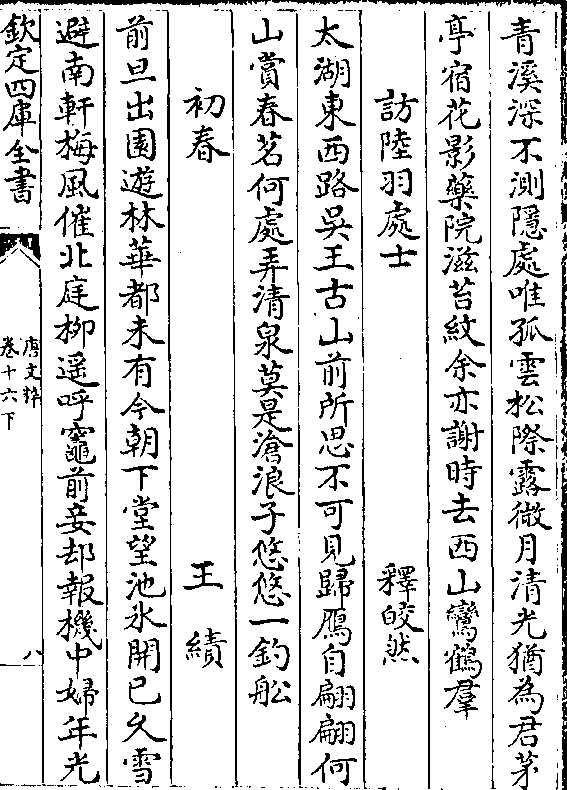 青溪深不測隱處唯孤雲松際露微月清光猶為君茅
亭宿花影藥院滋苔紋余亦謝時去西山鸞鶴羣
訪陸羽處士　釋皎然
太湖東西路吳王古山前所思不可見歸鴈自翩翩何
山賞春茗何處弄清泉莫是滄浪子悠悠一釣船
初春　王績
前旦出園遊林華都未有今朝下堂望池氷開已久雪
避南軒梅風催北庭柳遥呼竈前妾却報機中婦年光
欽定四庫全書
唐文粹
卷十六下
八